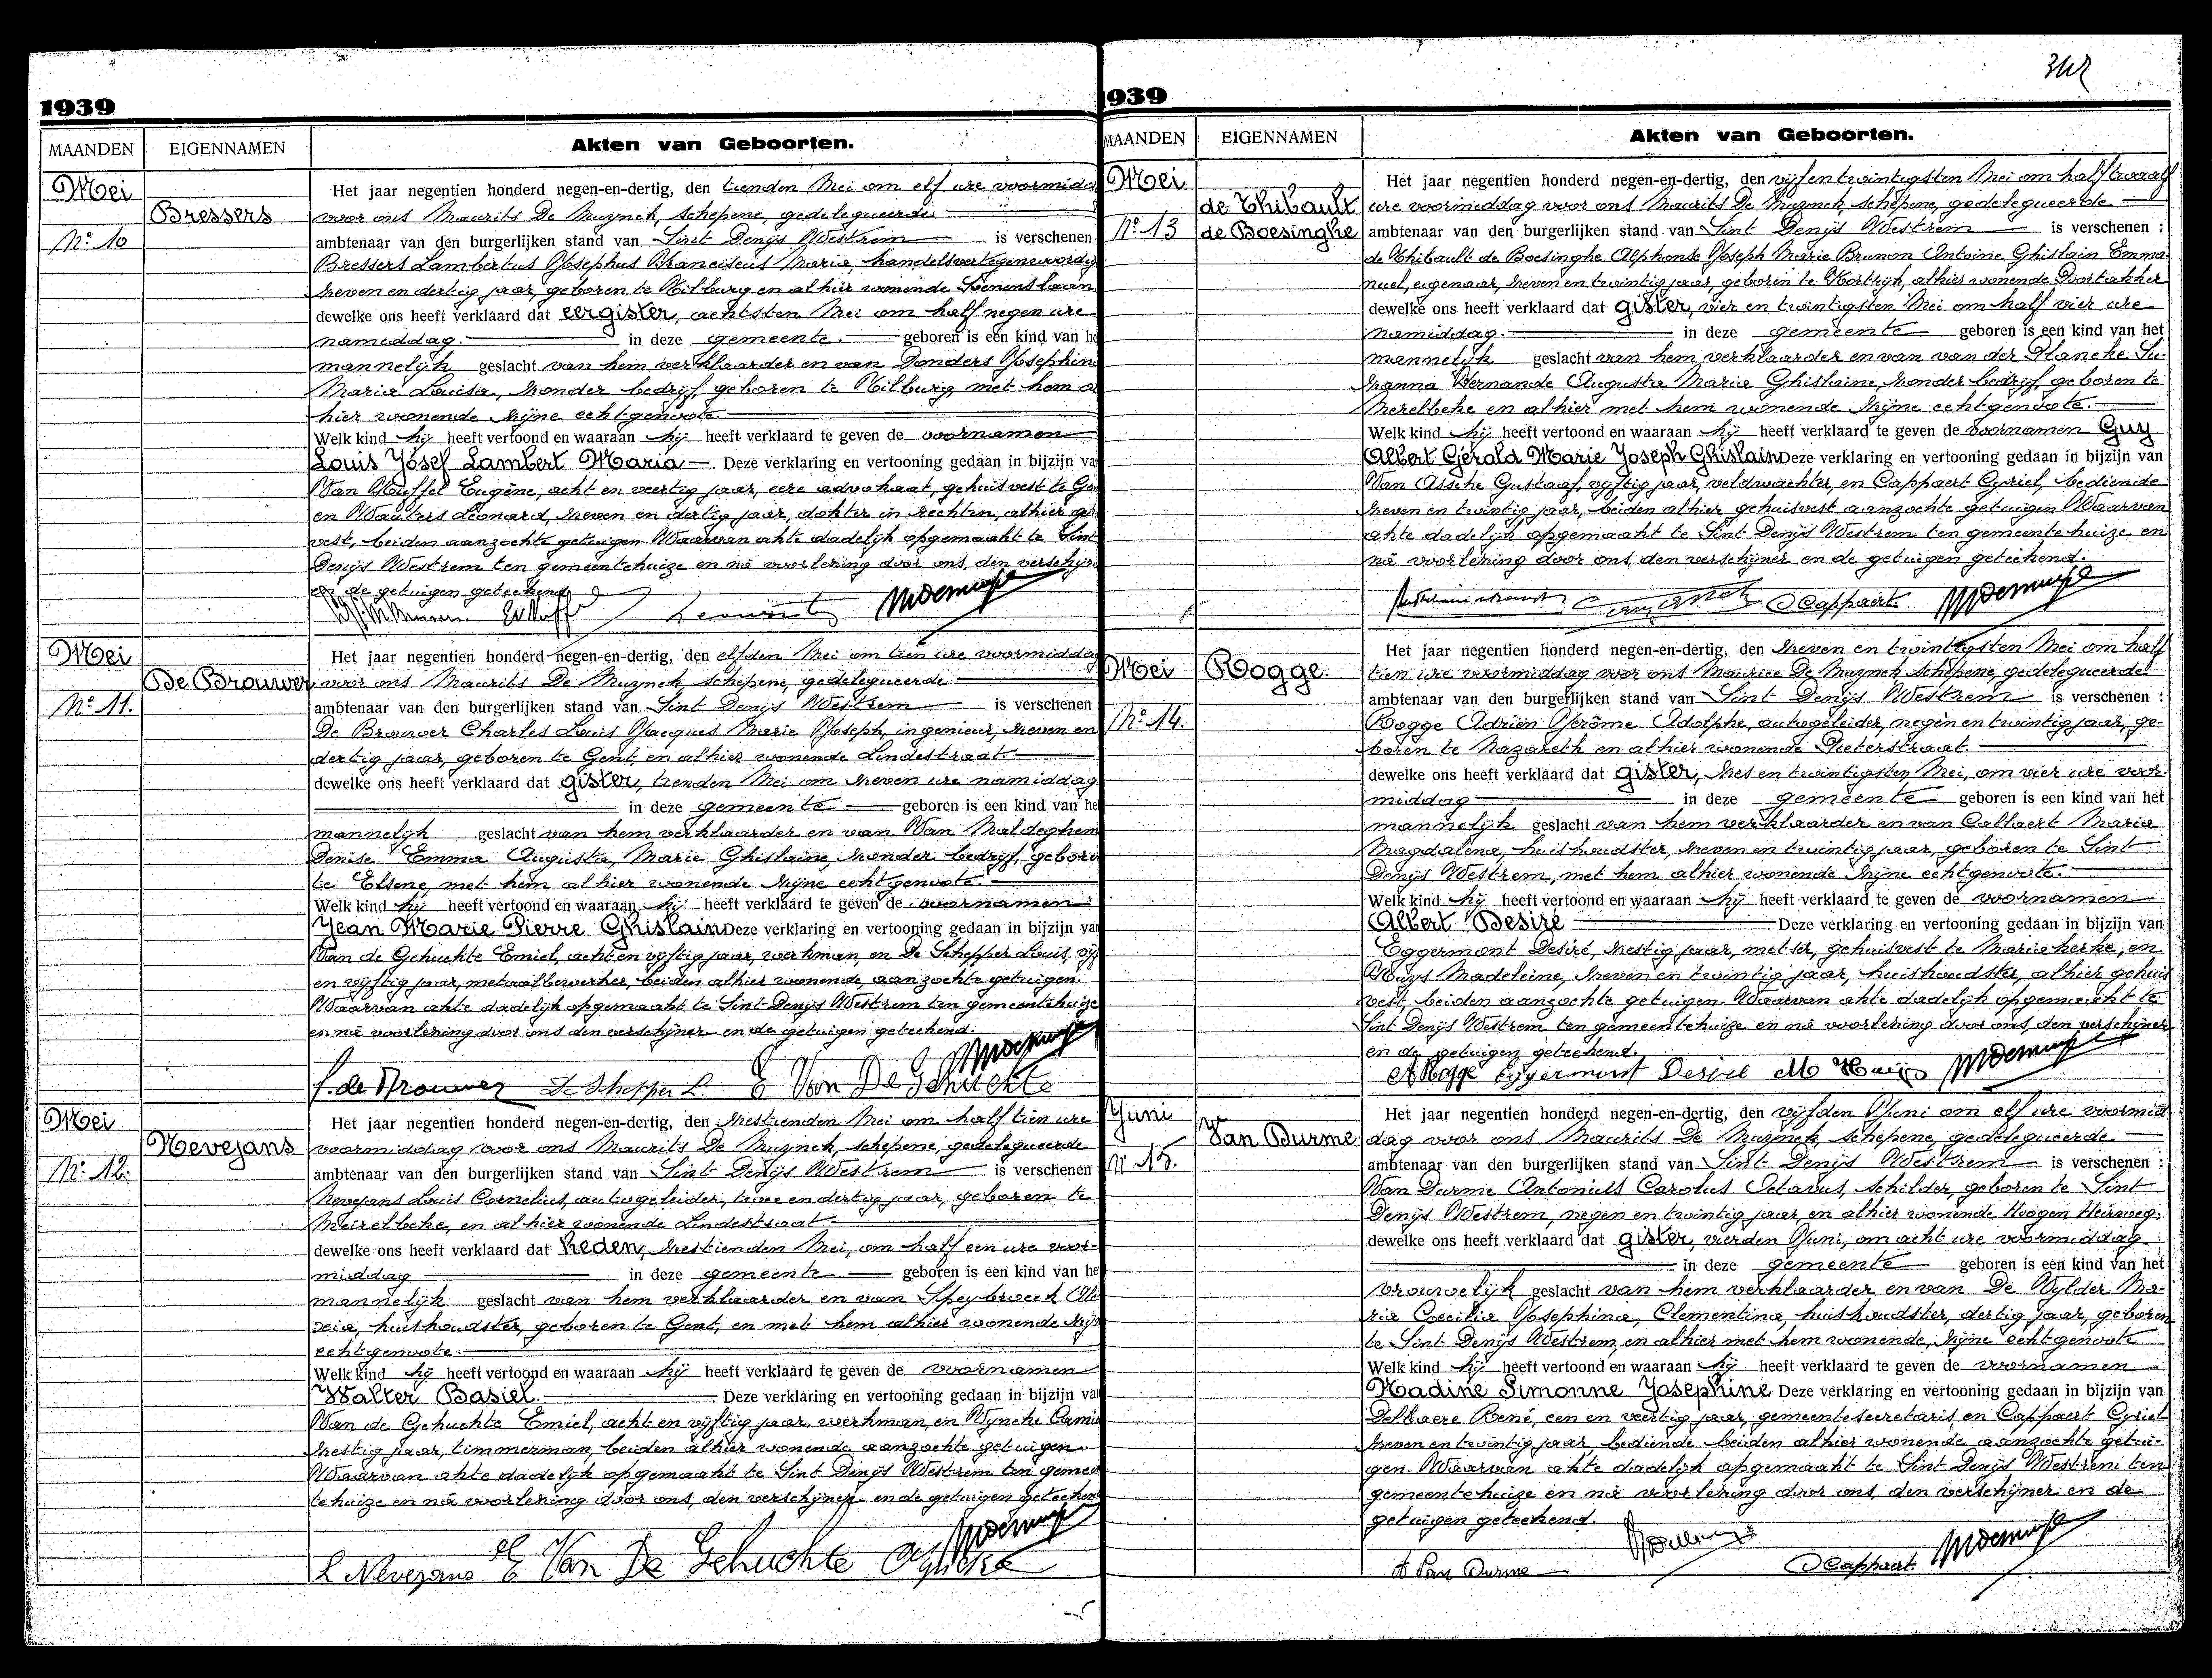 1939
MAANDEN EIGENNAMEN Akten van Geboorten.
Mei
Bressers
No. 10
Het jaar negentien honderd negen-en-dertig, den tienden Mei om elf ure voormidd
voor ons Maurits De Muynck, schepene, gedelegueerde
ambtenaar van den burgerlijken stand van Sint Denijs Westrem is verschenen
Bressers Lambertus Josephus Franciscus Maria, handelsvertegenwoordig
zeven en dertig jaar, geboren te Tilburg en alhier wonende Loenenslaan
dewelke ons heeft verklaard dat eergister, achtsten Mei om half negen ure
namiddag. in deze gemeente. geboren is een kind van he
mannelijk geslacht van hem verklaarder en van Donders Josephin
Maria Louisa, zonder bedrijf, geboren te Tilburg, met hem a
hier wonende zijne echtgenoote.
Welk kind hij heeft vertoond en waaraan hij heeft verklaard te geven de voornamen
Louis Josef Lambert Maria — Deze verklaring en vertooning gedaan in bijzijn va
Van Huffel Eugène, acht en veertig jaar, eere advokaat, gehuisvest te Ge
en Wauters Léonard, zeven en dertig jaar, dokter in rechten, alhier ge
vest, beiden aanzochte getuigen. Waarvan akte dadelijk opgemaakt te Sint
Denijs Westrem ten gemeentehuize en nà voorlezing door ons, den verschijn
en de getuigen geteekend.
Mei
De Brouwer
No. 11.
Het jaar negentien honderd negen-en-dertig, den elfden Mei om tien ure voormiddag
voor ons Maurits De Muynck, schepene, gedelegueerde
ambtenaar van den burgerlijken stand van Sint Denijs Westrem is verschenen
De Brouwer Charles Louis Jacques Marie Joseph, ingenieur, zeven en
dertig jaar, geboren te Gent, en alhier wonende Lindestraat.
dewelke ons heeft verklaard dat gister, tienden Mei om zeven ure namiddag
in deze gemeente geboren is een kind van he
mannelijk geslacht van hem verklaarder en van Van Maldeghem
Denise Emma Augusta, Marie Ghislaine, zonder bedrijf, gebore
te Elsene, met hem alhier wonende zijne echtgenoote.
Welk kind hij heeft vertoond en waaraan hij heeft verklaard te geven de voornamen
Jean Marie Pierre Ghislain Deze verklaring en vertooning gedaan in bijzijn va
Van de Gehuchte Emiel, acht en vijftig jaar, werkman, en De Schepper Louis, vijf
en vijftig jaar, metaalbewerker, beiden alhier wonende, aanzochte getuigen.
Waarvan akte dadelijk opgemaakt te Sint Denijs Westrem ten gemeentehuize
en nà voorlezing door ons den verschijner en de getuigen geteekend.
f. de Brouwer De Schepper L. E Van De Gehuchte
Mei
Nevejans
No. 12.
Het jaar negentien honderd negen-en-dertig, den zestienden Mei om half tien ure
voormiddag voor ons Maurits De Muynck, schepene, gedelegueerde
ambtenaar van den burgerlijken stand van Sint Denijs Westrem is verschenen
Nevejans Louis Cornelius, autogeleider, twee en dertig jaar, geboren te
Meirelbeke, en alhier wonende Lindestraat
dewelke ons heeft verklaard dat heden, zestienden Mei, om half een ure voor-
middag in deze gemeente geboren is een kind van he
mannelijk geslacht van hem verklaarder en van Speybroeck Al
xia, huishoudster, geboren te Gent, en met hem alhier wonende zijn
echtgenoote.
Welk kind hij heeft vertoond en waaraan hij heeft verklaard te geven de voornamen
Walter Basiel. Deze verklaring en vertooning gedaan in bijzijn va
Van de Gehuchte Emiel, acht en vijftig jaar, werkman, en Wyncke Cami
zestig jaar, timmerman, beiden alhier wonende aanzochte getuigen.
Waarvan akte dadelijk opgemaakt te Sint Denijs Westrem ten gemee
tehuize en nà voorlezing door ons, den verschijner en de getuigen geteeken
L Nevejans E Van De Gehuchte
1939
MAANDEN EIGENNAMEN Akten van Geboorten.
Mei
de Thibault
de Boesinghe
No. 13
Het jaar negentien honderd negen-en-dertig, den vijf en twintigsten Mei om half twaalf
ure voormiddag voor ons Maurits De Muynck, schepene, gedelegueerde
ambtenaar van den burgerlijken stand van Sint Denijs Westrem is verschenen :
de Thibault de Boesinghe Alphonse Joseph Marie Brunon Antoine Ghislain Emma-
nuel, eigenaar, zeven en twintig jaar, geboren te Kortrijk, alhier wonende Portakker
dewelke ons heeft verklaard dat gister, vier en twintigsten Mei om half vier ure
namiddag. in deze gemeente geboren is een kind van het
mannelijk geslacht van hem verklaarder en van van der Plancke Su-
zanna Fernande Augusta Maria Ghislaine, zonder bedrijf, geboren te
Merelbeke en alhier met hem wonende zijne echtgenoote.
Welk kind hij heeft vertoond en waaraan hij heeft verklaard te geven de voornamen Guy
Albert Gérald Marie Joseph Ghislain Deze verklaring en vertooning gedaan in bijzijn van
Van Assche Gustaaf, vijftig jaar, veldwachter, en Cappaert Cyriel, bediende
zeven en twintig jaar, beiden alhier gehuisvest aanzochte getuigen Waarvan
akte dadelijk opgemaakt te Sint Denijs Westrem ten gemeentehuize en
nà voorlezing door ons, den verschijner en de getuigen geteekend.
Cappaert.
Mei
Rogge.
No. 14.
Het jaar negentien honderd negen-en-dertig, den zeven en twintigsten Mei om half
tien ure voormiddag voor ons Maurice De Muynck schepene, gedelegueerde
ambtenaar van den burgerlijken stand van Sint Denijs Westrem is verschenen :
Rogge Adriën Jerôme Adolphe, autogeleider, negen en twintig jaar, ge-
boren te Nazareth en alhier wonende Pieterstraat.
dewelke ons heeft verklaard dat gister, zes en twintigsten Mei, om vier ure voor-
middag in deze gemeente geboren is een kind van het
mannelijk geslacht van hem verklaarder en van Callaert Maria
Magdalena, huishoudster, zeven en twintig jaar, geboren te Sint
Denijs Westrem, met hem alhier wonende zijne echtgenoote.
Welk kind hij heeft vertoond en waaraan hij heeft verklaard te geven de voornamen
Albert Desiré Deze verklaring en vertooning gedaan in bijzijn van
Eggermont Desiré, zestig jaar, metser, gehuisvest te Mariakerke, en
Huys Madeleine, zeven en twintig jaar, huishoudster, alhier gehuis
vest, beiden aanzochte getuigen. Waarvan akte dadelijk opgemaakt te
Sint Denijs Westrem ten gemeentehuize en nà voorlezing door ons, den verschijner
en de getuigen geteekend.
A Rogge Eggermont Desiré M Huijs
Juni
Van Durme
No 15.
Het jaar negentien honderd negen-en-dertig, den vijfden Juni om elf ure voormid
dag voor ons Maurits De Muynck, schepene, gedelegueerde
ambtenaar van den burgerlijken stand van Sint Denijs Westrem is verschenen :
Van Durme Antonius Carolus Octavus, schilder, geboren te Sint
Denijs Westrem, negen en twintig jaar, en alhier wonende Hoogen Heirweg.
dewelke ons heeft verklaard dat gister, vierden Juni, om acht ure voormiddag
in deze gemeente geboren is een kind van het
vrouwelijk geslacht van hem verklaarder en van De Wylder Ma-
ria Coecilia Josephina, Clementina, huishoudster, dertig jaar, geboren
te Sint Denijs Westrem, en alhier met hem wonende, zijne echtgenoote
Welk kind hij heeft vertoond en waaraan hij heeft verklaard te geven de voornamen
Nadine Simonne Josephine Deze verklaring en vertooning gedaan in bijzijn van
Delbaere René, een en veertig jaar, gemeentesecretaris, en Cappaert Cyriel
zeven en twintig jaar, bediende beiden alhier wonende aanzochte getui-
gen. Waarvan akte dadelijk opgemaakt te Sint Denijs Westrem ten
gemeentehuize en nà voorlezing door ons, den verschijner en de
getuigen geteekend.
A Van Durme Cappaert.